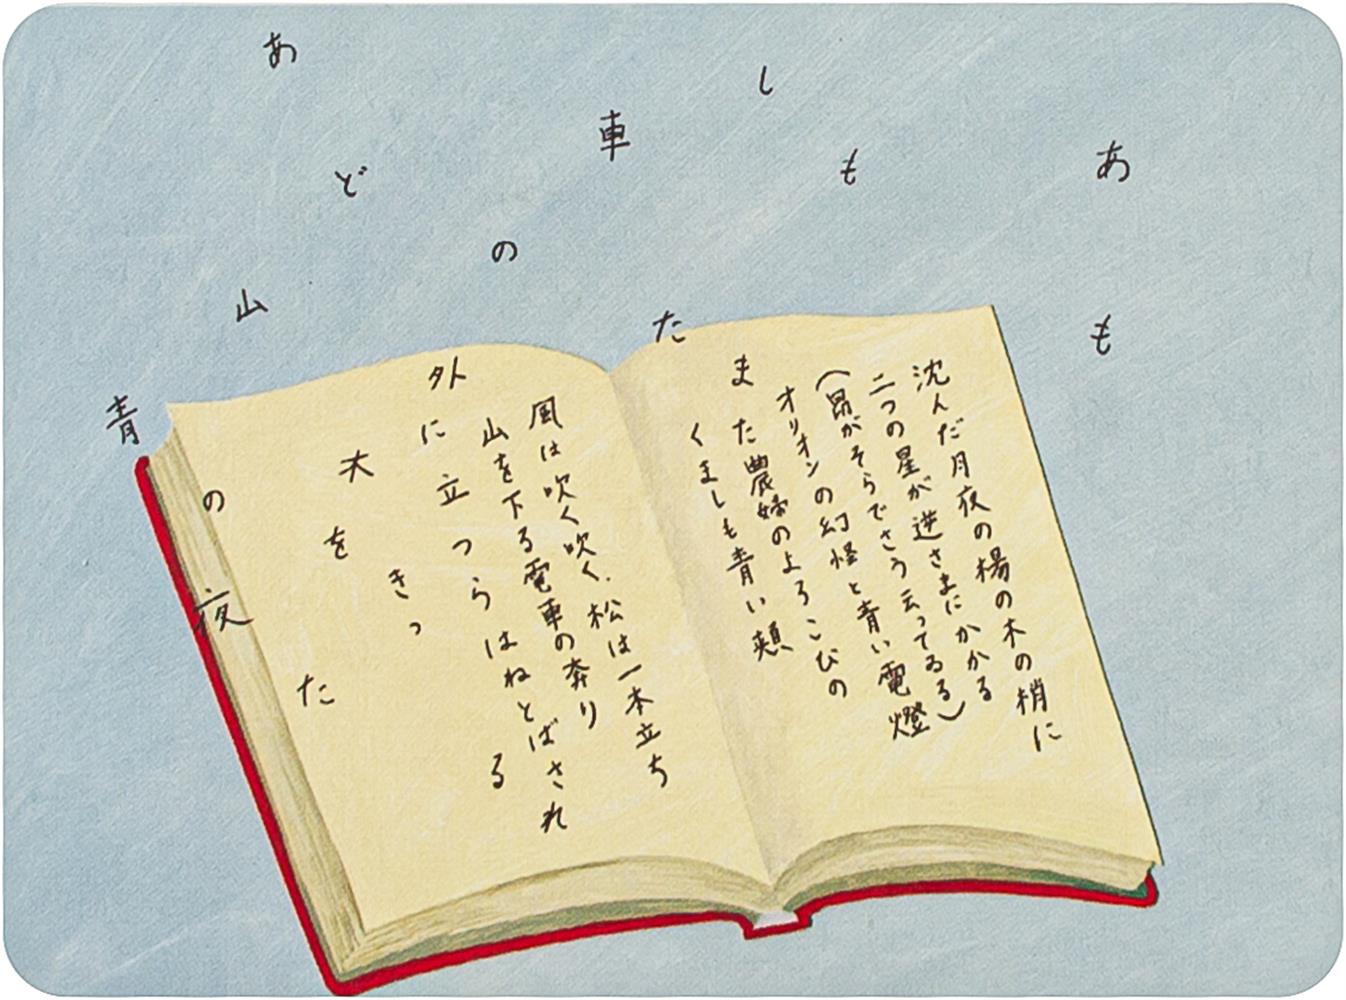 あ
も
し
も
車
の
あ
ど
山
青
の
夜
沈んだ月夜の楊の木の梢に
二つの星が逆さまにかかる
(昴がそらでさう云ってゐる)
オリオンの幻怪と青い電燈
また農婦のよろこびの
たくましも青い頬
風は吹く吹く、松は一本立ち
山を下る電車の奔り
外に立つらはねとばされ
る
きっ
大を
た